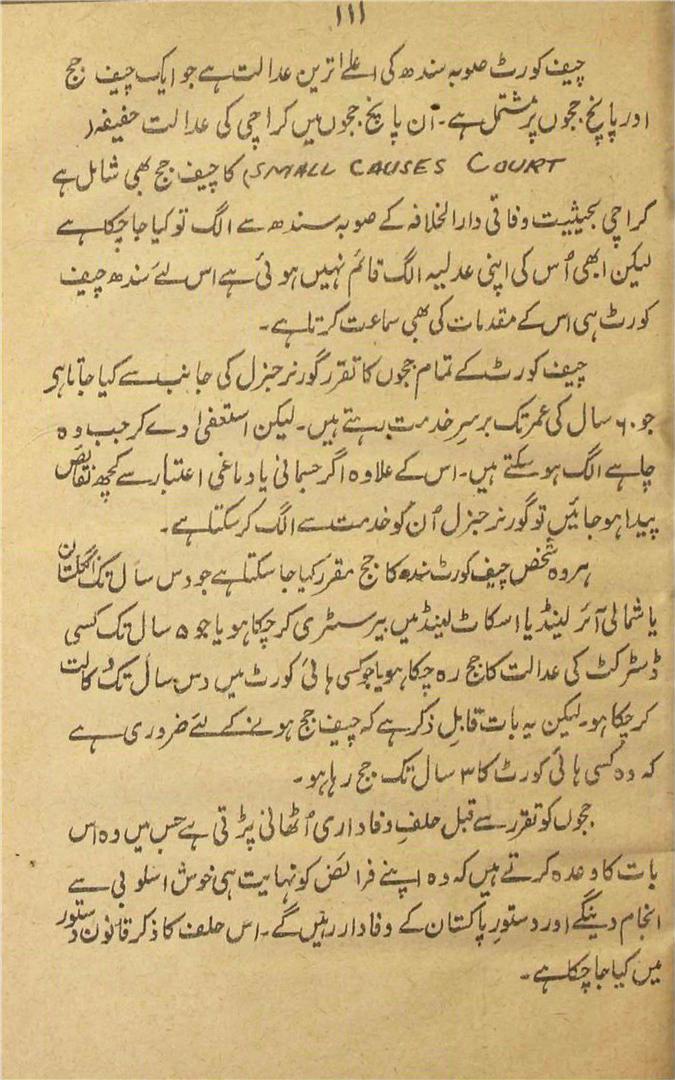 ۱۱۱
چیف کورٹ صوبہ سندھ کی اعلےٰ ترین عدالت ہے جو ایک چیف جج
اور پانچ ججوں پر مشتمل ہے۔ ان پانچ ججوں میں کراچی کی عدالت خفیفہ (
SMALL CAUSES COURT) کا چیف جج بھی شامل ہے
کراچی بحیثیت وفاقی دارالخلافہ کے صوبہ سندھ سے الگ تو کیا جا چکا ہے
لیکن ابھی اُس کی اپنی عدلیہ الگ قائم نہیں ہوئی ہے اس لئے سندھ چیف
کورٹ ہی اس کے مقدمات کی بھی سماعت کرتا ہے۔
چیف کورٹ کے تمام ججوں کا تقرر گورنر جنرل کی جانب سے کیا جاتا ہی
جو ۶۰ سال کی عمر تک برسرِ خدمت رہتے ہیں۔ لیکن استعفیٰ دے کر جب وہ
چاہے الگ ہو سکتے ہیں۔ اس کے علاوہ اگر جسمانی یا دماغی اعتبار سے کچھ نقائص
پیدا ہو جائیں تو گورنر جنرل اُن کو خدمت سے الگ کر سکتا ہے۔
ہر وہ شخص چیف کورٹ سندھ کا جج مقرر کیا جا سکتا ہے جو دس سال تک انگلستان
یا شمالی آئر لینڈ یا اسکاٹ لینڈ میں بیرسٹری کر چکا ہو یا جو ۵ سال تک کسی
ڈسٹرکٹ کی عدالت کا جج رہ چکا ہو یا جو کسی ہائی کورٹ میں دس سال تک وکالت
کر چکا ہو۔ لیکن یہ بات قابلِ ذکر ہے کہ چیف جج ہونے کے لئے ضروری ہے
کہ وہ کسی ہائی کورٹ کا ۳ سال تک جج رہا ہو۔
ججوں کو تقرر سے قبل حلفِ وفاداری اُٹھانی پڑتی ہے جس میں وہ اس
بات کا وعدہ کرتے ہیں کہ وہ اپنے فرائض کو نہایت ہی خوش اسلوبی سے
انجام دینگے اور دستورِ پاکستان کے وفادار رہیں گے۔ اس حلف کا ذکر قانون دستور
میں کیا جا چکا ہے۔